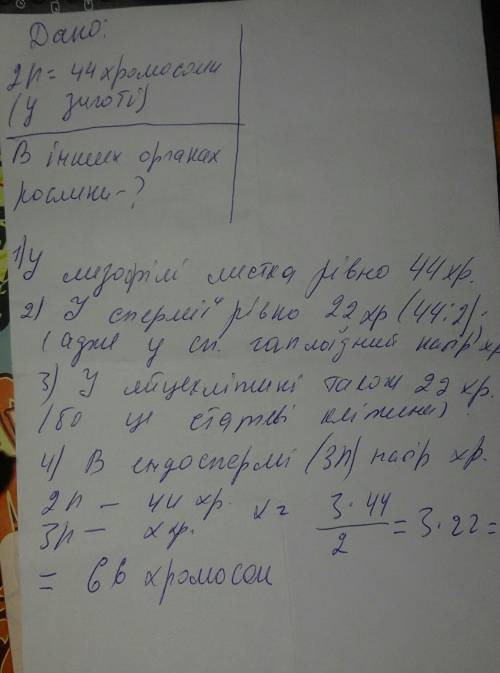 Дано:
2n = 44 хромосоми
(у зиготі)
В інших органах
рослини - ?
1) У мезофілі листка рівно 44 хр.
2) У спермії рівно 22 хр (44:2).
(адже у сп. гаплоїдний набір хр
3) У яйцеклітині також 22 хр.
(бо це статеві клітини)
4) В ендоспермі (3n) набір хр.
2n — 44 хр.
3n — x хр. x = 3·44 / 2 = 3·22 =
= 66 хромосом